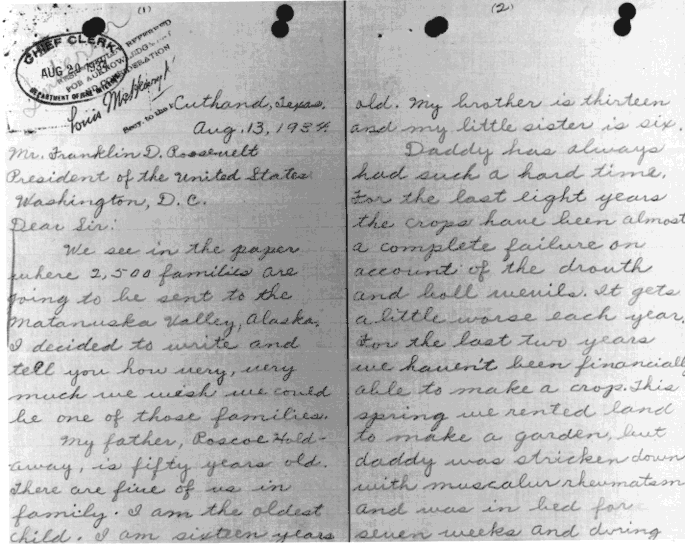 (1)
CHIEF CLERK
AUG 20 1934
DEPARTMENT OF
REFERRED
FOR
CONSIDERATION
Louis McHenry
Secy. to the
Cuthand, Texas.
Aug. 13, 1934
Mr. Franklin D. Roosevelt
President of the United States
Washington, D.C.
Dear Sir:
We see in the paper
where 2,500 families are
going to be sent to the
Matanuska Valley, Alaska.
I decided to write and
tell you how very, very
much we wish we could
be one of those families.
My father, Roscoe Hold-
away, is fifty years old.
There are five of us in
family. I am the oldest
child. I am sixteen years
(2)
old. My brother is thirteen
and my little sister is six.
Daddy has always
had such a hard time.
For the last eight years
the crops have been almost
a complete failure on
account of the drouth
and boll wevils. It gets
a little worse each year.
For the last two years
we haven't been financially
able to make a crop. This
spring we rented land
to make a garden, but
daddy was stricken down
with muscalur rheumatsm
and was in bed for
seven weeks and during